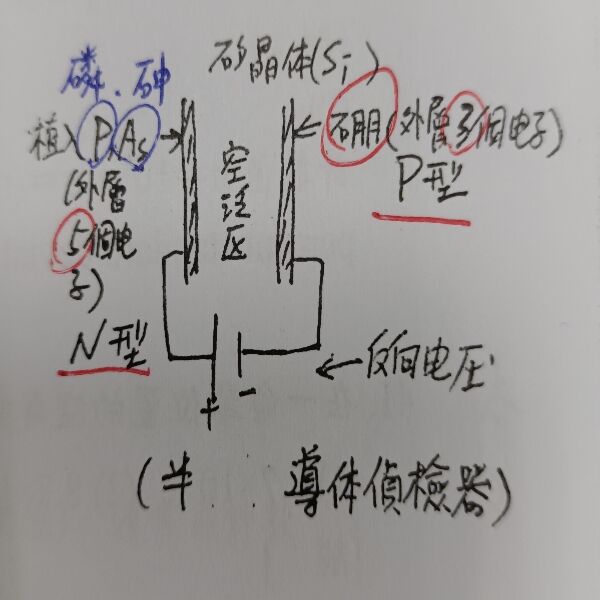 磷、砷
矽晶体(Si)
植入P、As
(外層
5個电
子)
N型
空泛区
硼(外層3個电子)
P型
+ -
反向电压
(半..導体偵檢器)